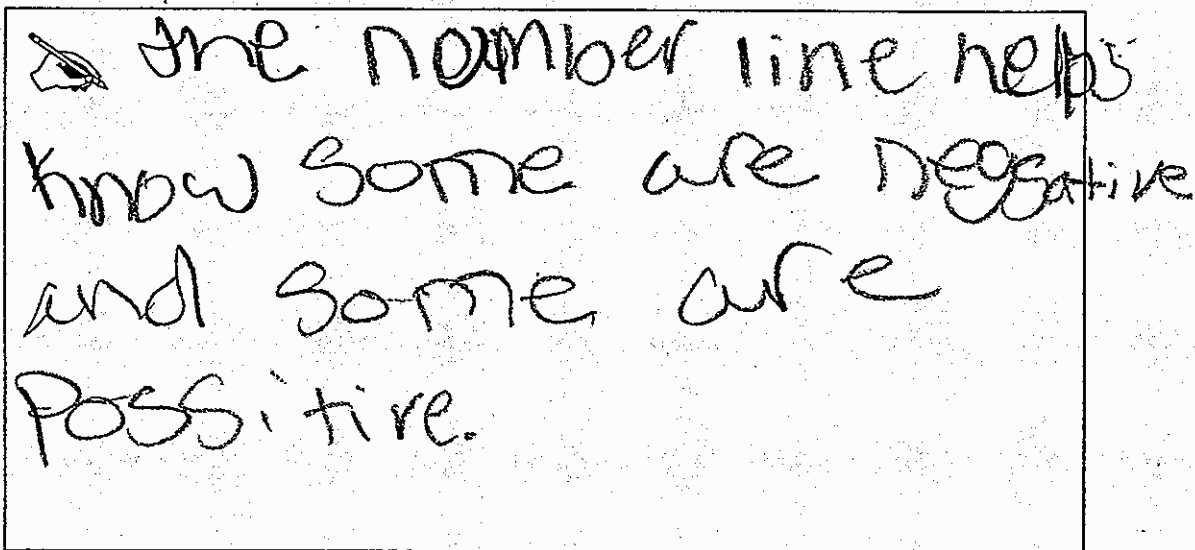 the number line helps
know some are negative
and some are
possitive.